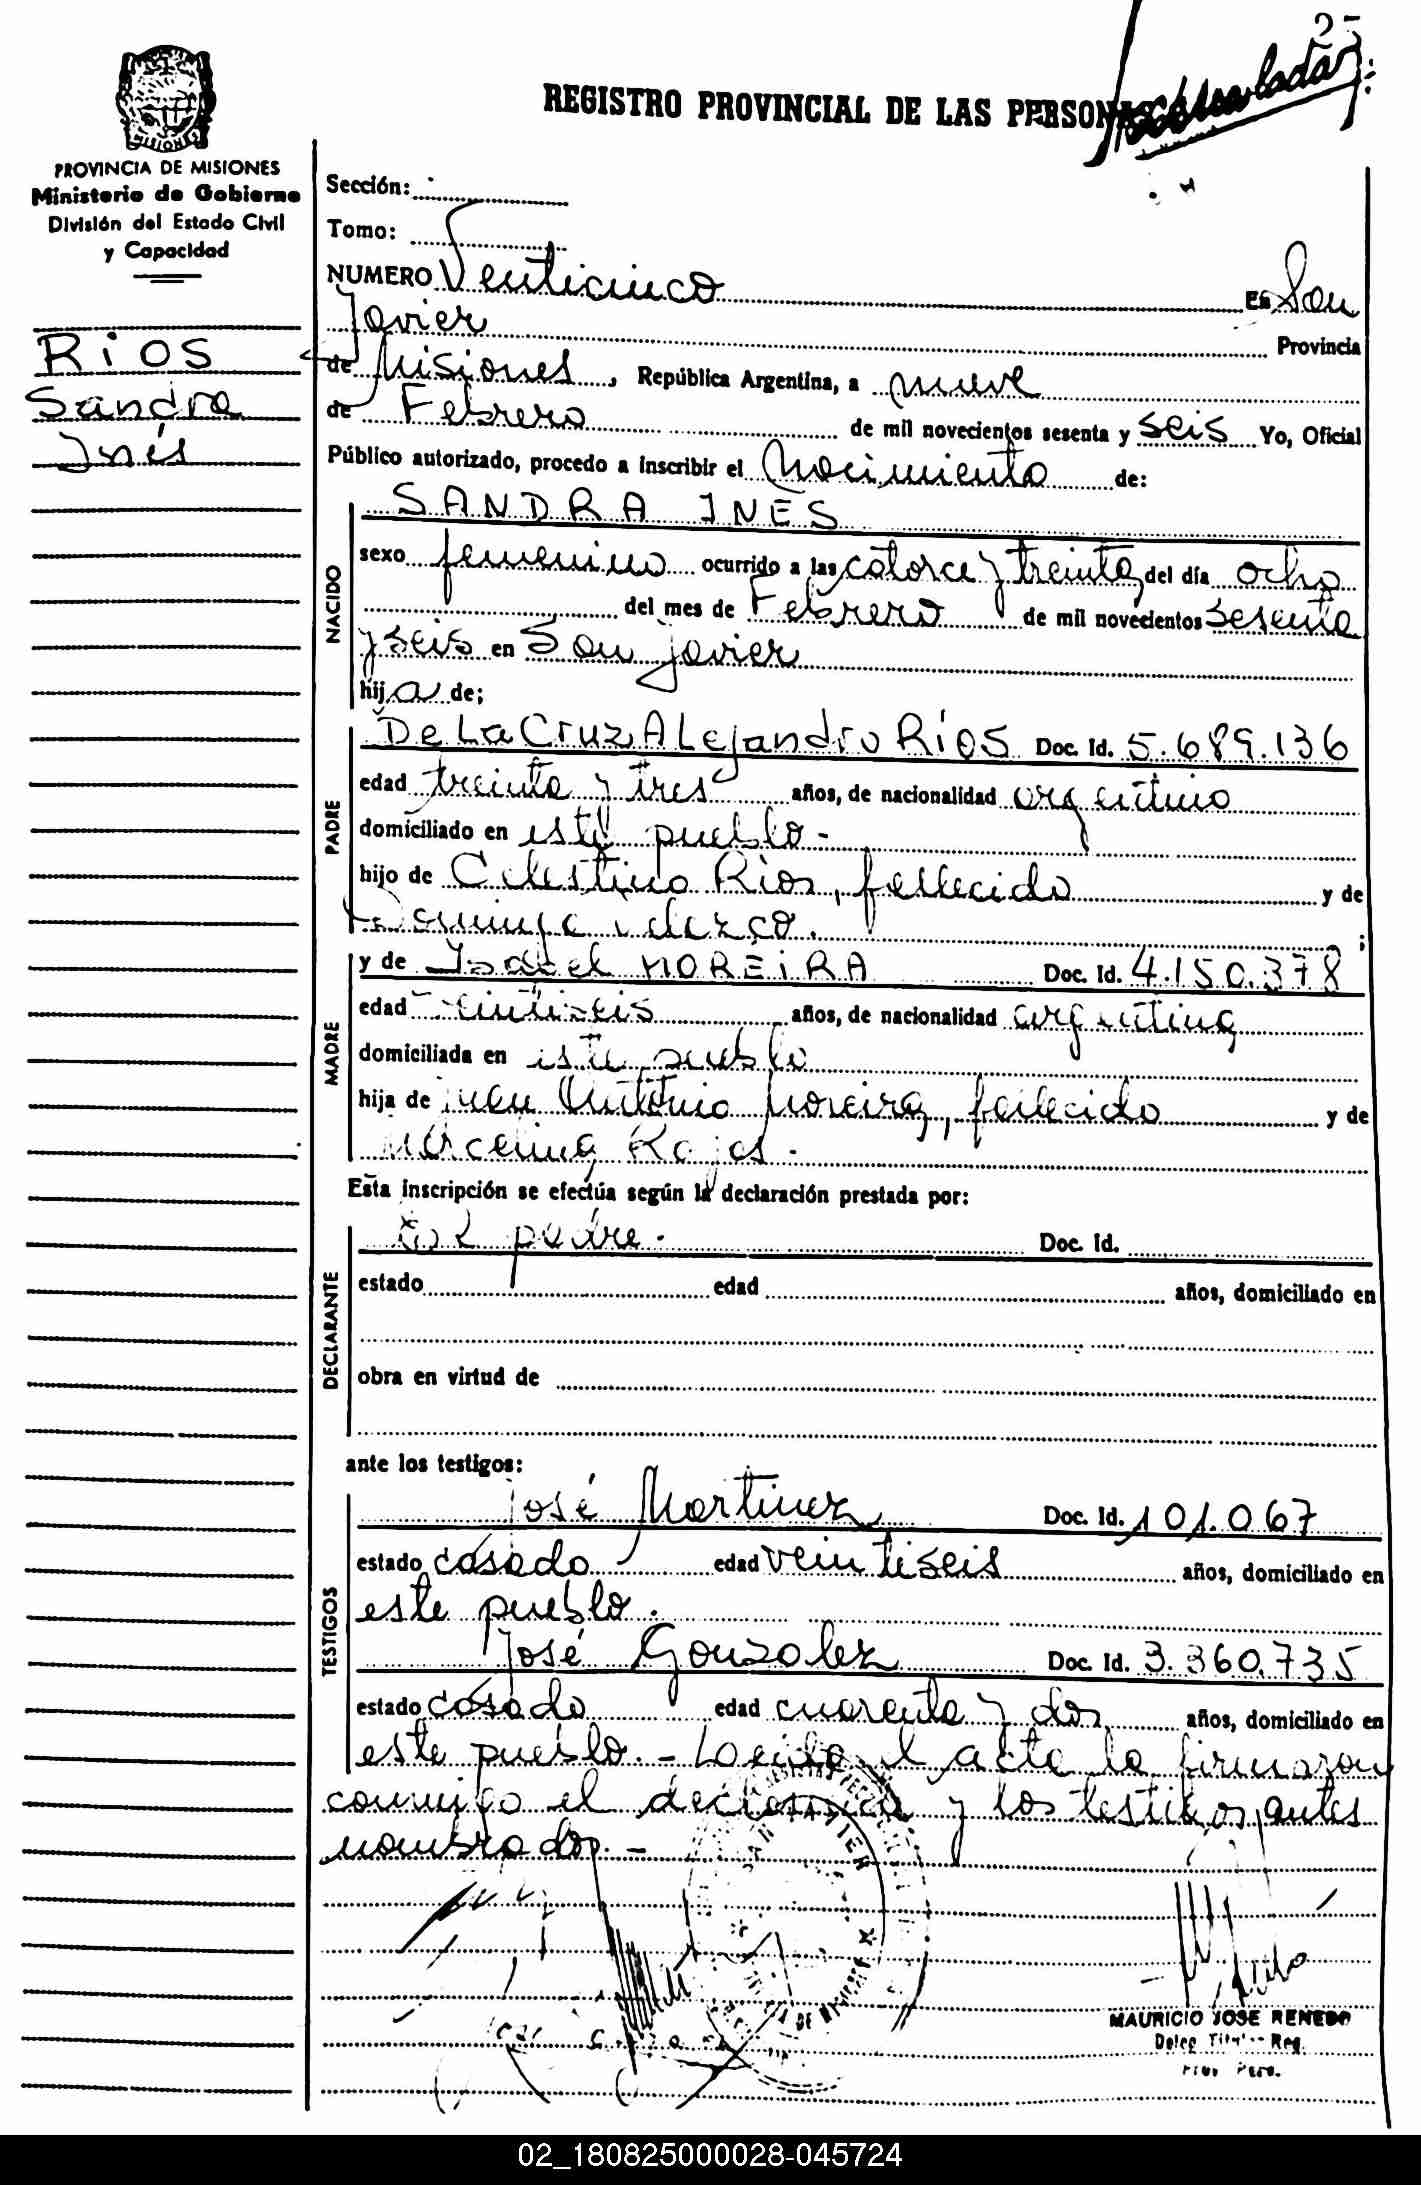 25
REGISTRO PROVINCIAL DE LAS PERSONAS
MISIONES
PROVINCIA DE MISIONES
Ministerio de Gobierno
División del Estado Civil
y Capacidad
RíOS
Sandra
Inés
Sección:
Tomo:
NUMERO Venticinco En San
Javier Provincia
de Misiones, República Argentina, a nueve
de Febrero de mil novecientos sesenta y seis Yo, Oficial
Público autorizado, procedo a inscribir el Nacimiento de:
NACIDO
SANDRA INÉS
sexo femenino ocurrido a las catorce y treinta del día ocho
del mes de Febrero de mil novecientos sesenta
y seis en San Javier
hija de;
PADRE
De La Cruz Alejandro Ríos Doc. Id. 5.689.136
edad treinta y tres años, de nacionalidad argentino
domiciliado en este pueblo-
hijo de Celestino Ríos, fallecido y de
;
MADRE
y de Isabel MOREiRA Doc. Id. 4.150.378
edad veintiseis años, de nacionalidad argentina
domiciliada en este pueblo
hija de Juan Antonio Moreira, fallecido y de
Marcelina Rojas.
Esta inscripción se efectúa según la declaración prestada por:
DECLARANTE
El padre. Doc. Id.
estado edad años, domiciliado en
obra en virtud de
ante los testigos:
TESTIGOS
José Martinez Doc. Id. 101.067
estado casado edad veintiseis años, domiciliado en
este pueblo.
José Gonzalez Doc. Id. 3.360.735
estado casado edad cuarenta y dos años, domiciliado en
este pueblo.- Leida el acta la firmaron
conmigo el declarante y los testigos antes
nombrados.-
SAN JAVIER
MAURICIO JOSE RENEDO
Deleg. Titular Reg.
Prov. Pers.
02_180825000028-045724